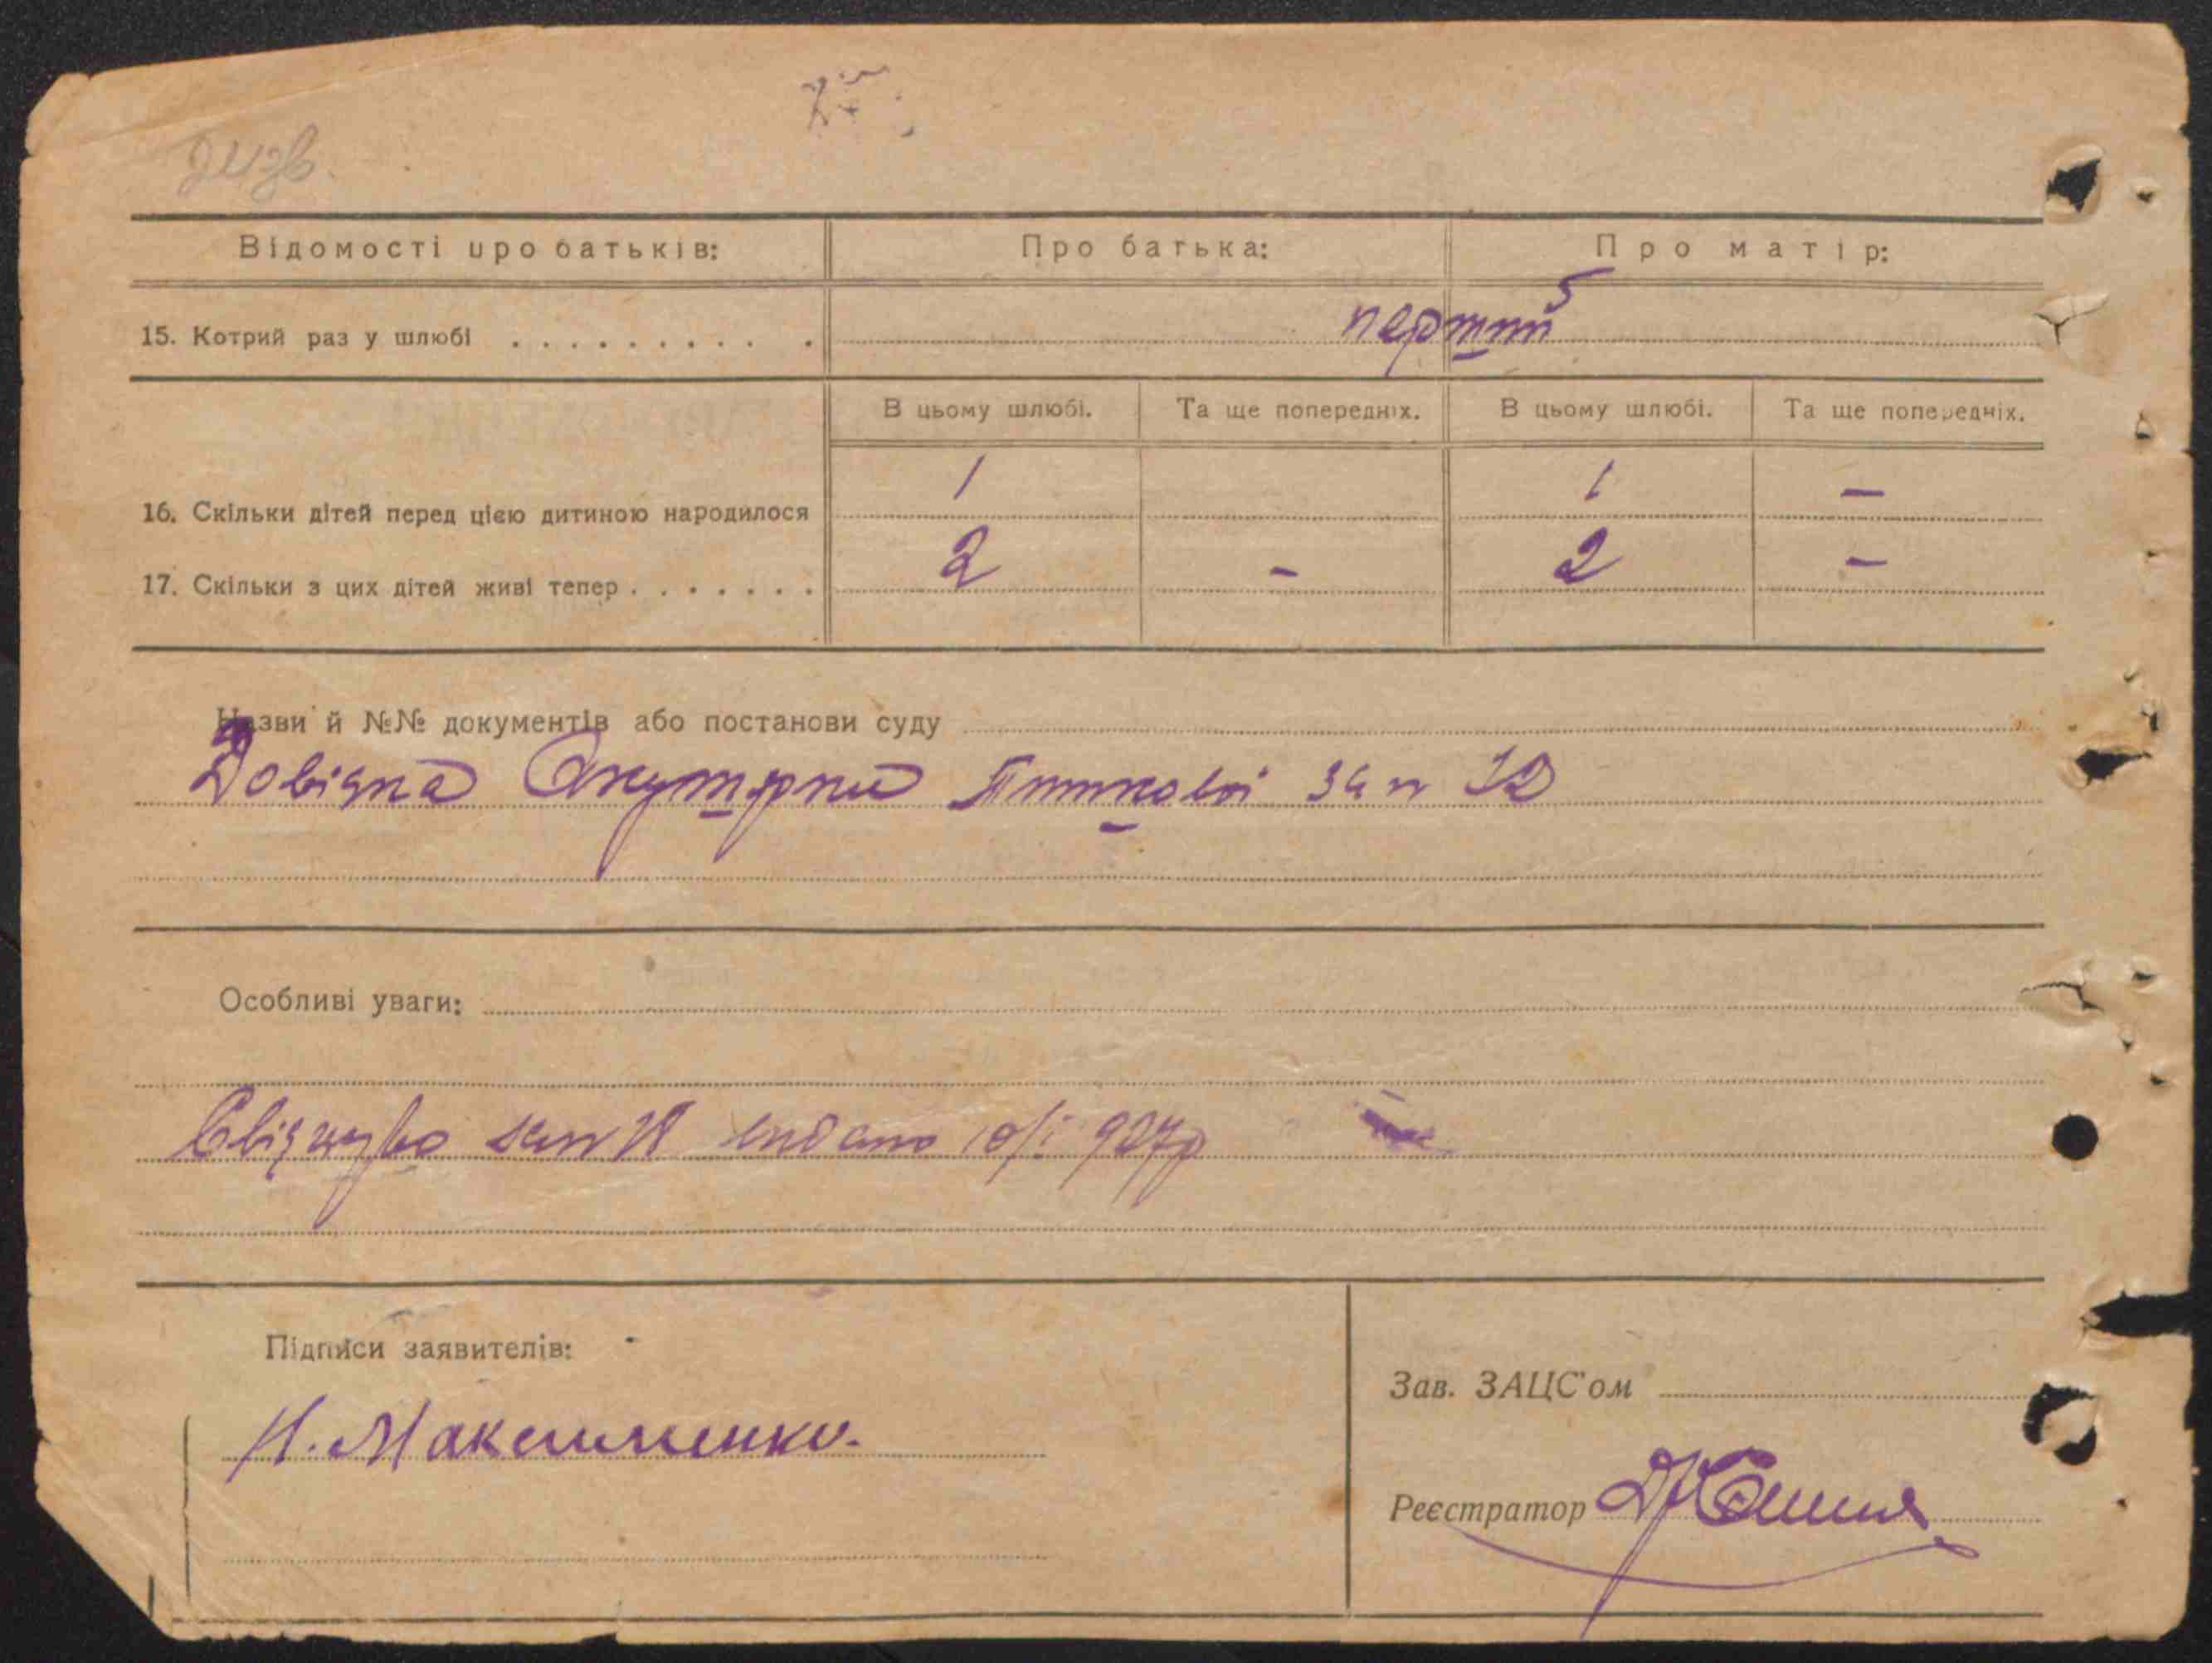 Відомості про батьків: Про батька: Про матір:
15. Котрий раз у шлюбі . . . . . . . . . . перший
В цьому шлюбі. Та ще попередніх. В цьому шлюбі. Та ще попередніх.
16. Скільки дітей перед цією дитиною народилося 1 1 —
17. Скільки з цих дітей живі тепер . . . . . . . 2 - 2 -
Назви й №№ документів або постанови суду
Довідка Акушерки за n
Особливі уваги:
видано 10/I 927р
Підписи заявителів:
Зав. ЗАЦС'ом
Н. Максименко.
Реєстратор